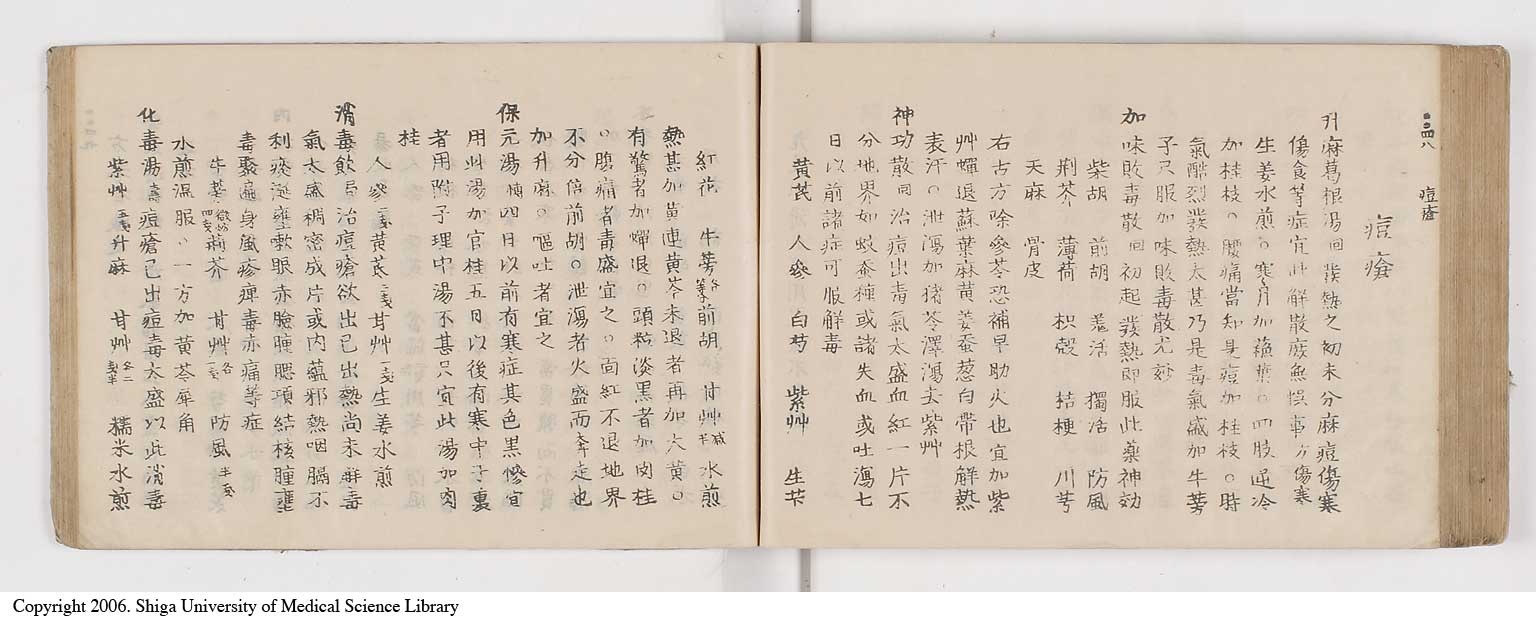 二ノ四八
痘瘡
痘瘡
升麻葛根湯 回 發熱之初未分麻痘傷寒
傷食等症宜此解散庶無悞事方傷寒
生姜水煎○寒月加葱葉○四肢逆冷
加桂枝○腰痛當知是痘加桂枝○時
氣酷烈發熱太甚乃是毒氣盛加牛蒡
子只服加味敗毒散尤妙
加味敗毒散 回 初起發熱即服此藥神効
柴胡 前胡 羗活 獨活 防風
荊芥 薄荷 枳殻 桔梗 川芎
天麻 骨皮
右古方除參苓恐補早助火也宜加紫
艸蟬退蘇葉麻黄姜蚕葱白帶根解熱
表汗○泄瀉加猪苓澤瀉去紫艸
神功散 回 治痘出毒氣太盛血紅一片不
分地界如蚊蚤種或諸失血或吐瀉七
日以前諸症可服解毒
黄芪 人參 白芍 紫艸 生芐
紅花 牛蒡 各等 前胡 甘艸 減半 水煎
熱甚加黄連黄芩未退者再加大黄○
有驚者加蟬退○頭粒淡黒者加肉桂
○腹痛者毒盛宜之○面紅不退地界
不分倍前胡○泄瀉者火盛而奔走也
加升麻○嘔吐者宜之
保元湯 補 四日以前有寒症其色黒慘宜
用此湯加官桂五日以後有寒中子裏
者用附子理中湯不甚只宜此湯加肉
桂
人參 二戔 黄芪 二戔 甘艸 一戔 生姜水煎
消毒飲 局 治痘瘡欲出已出熱尚未解毒
氣太盛稠密成片或内蘊邪熱咽膈不
利痰涎壅嗽眼赤臉腫腮項結核腫壅
毒聚遍身風疹痺毒赤痛等症
牛蒡 微炒四戔 荊芥 甘艸 各一戔 防風 半戔
水煎温服○一方加黄芩犀角
化毒湯 痘瘡已出痘毒太盛以此消毒
紫艸 五戔 升麻 甘艸 各二戔半 糯米水煎